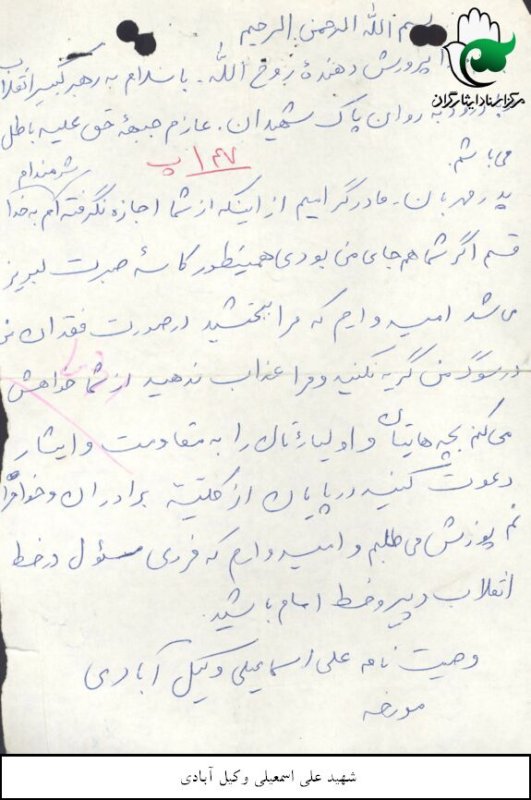 بسم الله الرحمن الرحیم
مرکز اسناد ایثارگران
پرورش دهنده روح الله. با سلام به رهبر کبیر انقلاب
و درود به روان پاک شهیدان. عازم جبهه حق علیه باطل
می باشم.
۱۴۷ پ
شرمنده ام
پدر مهربان. مادر گرامیم از اینکه از شما اجازه نگرفته ام به خدا
قسم اگر شما هم جای من بودی همینطور کاسه صبرت لبریز
می شد امیدوارم که مرا ببخشید در صورت فقدان
در سوگ من گریه نکنید و مرا عذاب ندهید از شما خواهش
می کنم بچه هایتان و اولیاءتان را به مقاومت و ایثار
دعوت کنید در پایان از کلیه برادران و خواهرا
نم پوزش می طلبم و امیدوارم که فردی مسئول در خط
انقلاب و پیرو خط امام باشید.
وصیت نامه علی اسماعیلی وکیل آبادی
مورخه
شهید علی اسمعیلی وکیل آبادی